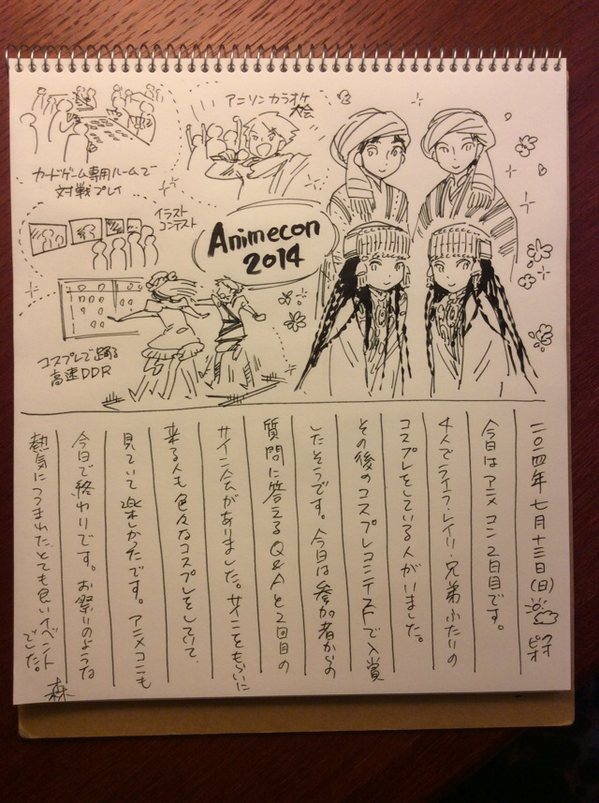 アニソンカラオケ
大会
カードゲーム専用ルームで
対戦プレイ
イラスト
コンテスト
Animecon
2014
コスプレで踊る
高速DDR
二〇一四年七月十三日(日) クオピオ
今日はアニメコン2日目です。
4人でライラ・レイリ・兄弟ふたりの
コスプレをしている人がいました。
その後のコスプレコンテストで入賞
したそうです。今日は参加者からの
質問に答えるQ&Aと2回目の
サイン会がありました。サインをもらいに
来る人も色々なコスプレをしていて、
見ていて楽しかったです。アニメコンも
今日で終わりです。お祭りのような
熱気につつまれた、とても良いイベント
でした。
森